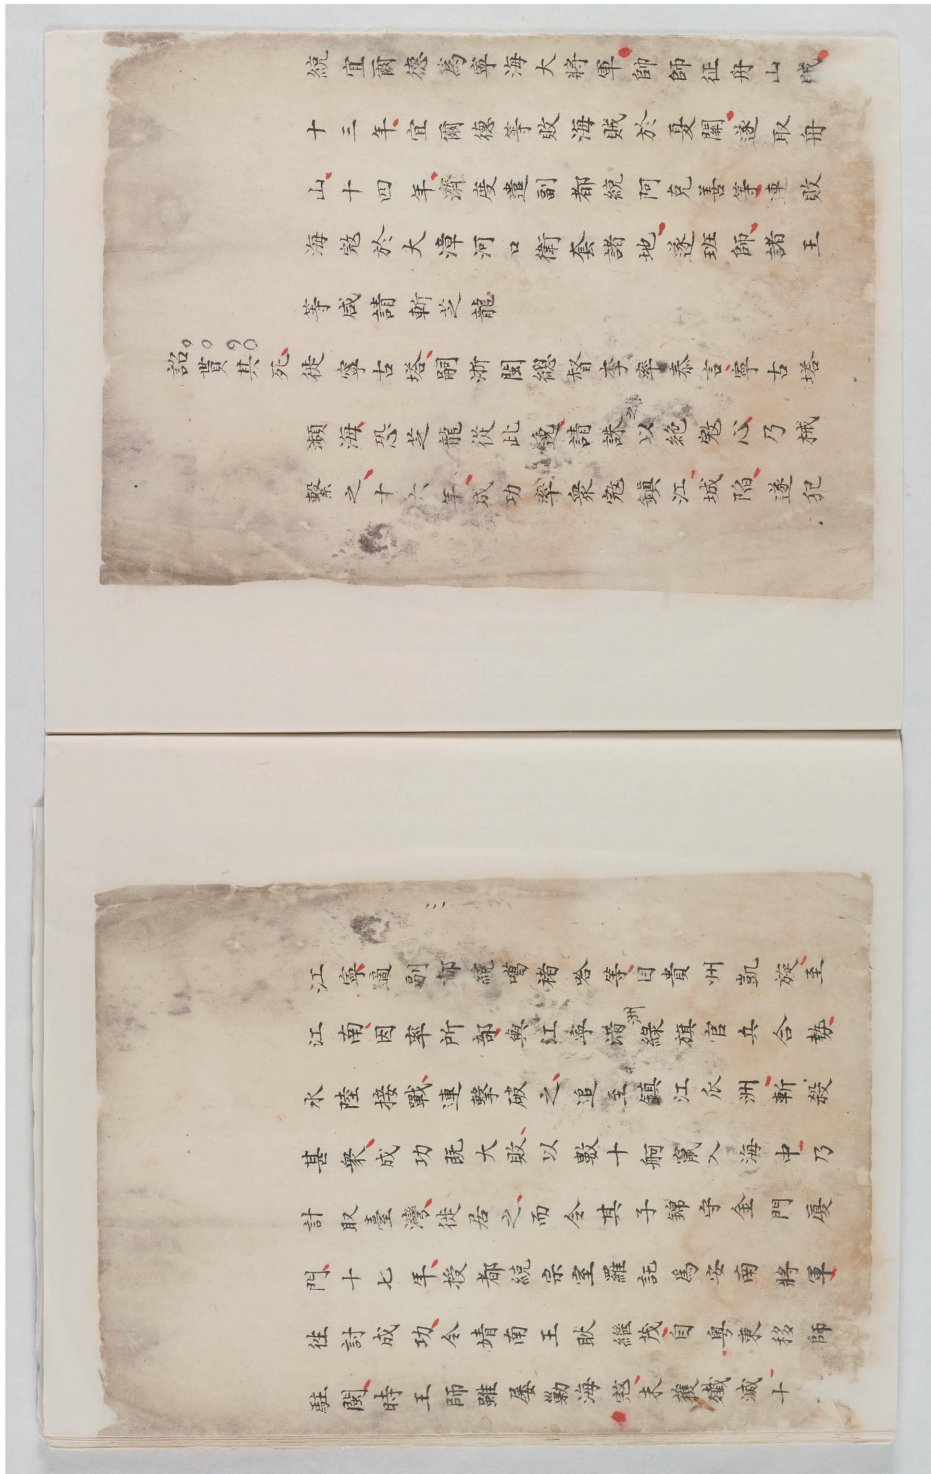 統宜爾德為寧海大將軍帥師征舟山賊
十三年宜爾德等敗海賊於夏關遂取舟
山十四年濟度遣副都統阿克善等連敗
海寇於大漳河口衛套諸地遂班師諸王
等咸請斬芝龍
詔貰其死徙寧古塔嗣浙閩總督李率泰言寧古塔
瀕海恐芝龍從此逸請誅之以絕寇心乃械
繫之十六年成功率衆寇鎮江城陷遂犯
江寧適副都統噶褚哈等自貴州凱旋至
江南因率所部與江寧滿洲綠旗官兵合勢
水陸接戰連擊破之追至鎮江瓜洲斬殺
甚衆成功既大敗以數十舸竄入海中乃
計取臺灣徙居之而令其子錦守金門廈
門十七年授都統宗室羅託為安南將軍
往討成功令靖南王耿繼茂自粵東移師
駐閩時王師雖屢勦海寇未獲殲滅十